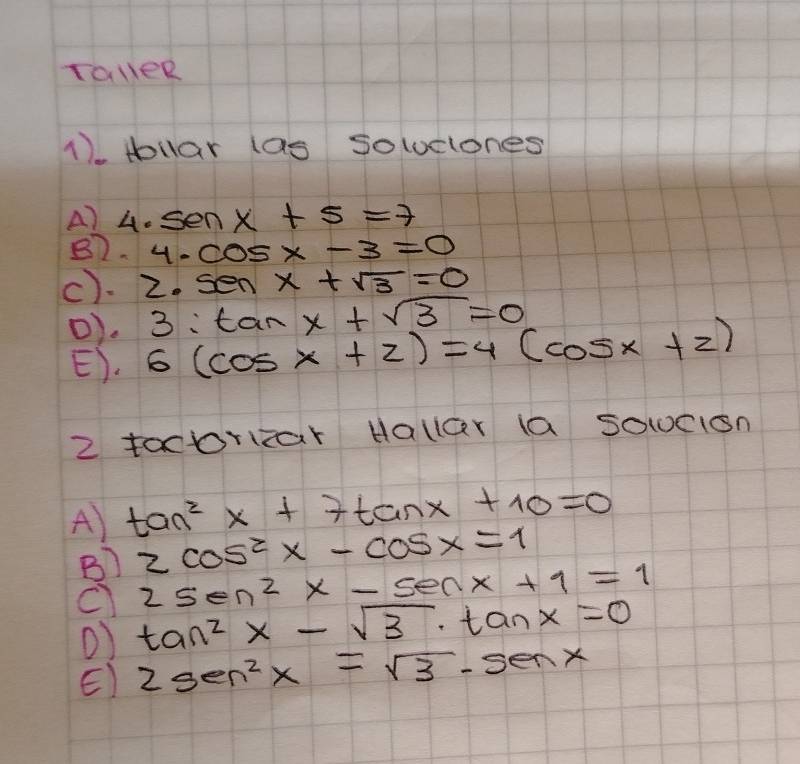 Taller
1). Hallar las soluciones
A) 4. sen x + 5 = 7
B). 4. cos x - 3 = 0
C). 2. sen x + √3 = 0
D). 3. tan x + √3 = 0
E). 6 (cos x + 2) = 4 (cosx + 2)
2 factorizar Hallar la solución
A) tan² x + 7tanx + 10 = 0
B) 2 cos² x - cosx = 1
C) 2 sen² x - senx + 1 = 1
D) tan² x - √3 . tan x = 0
E) 2 sen² x = √3 - sen x